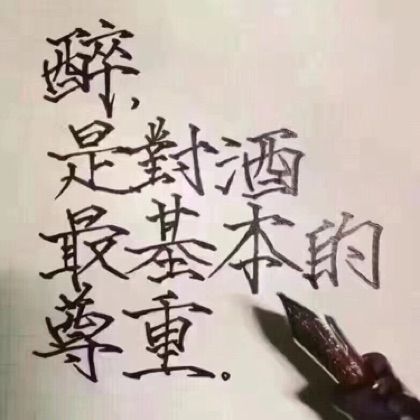 醉,
是對酒
最基本的
尊重。